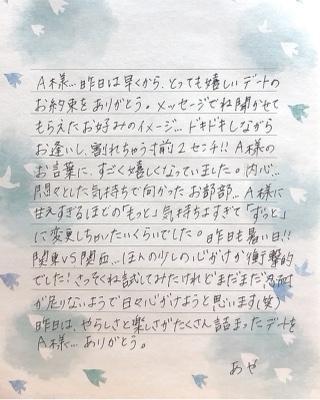 A様… 昨日は早くから、とっても嬉しいデートの
お約束をありがとう。メッセージでお聞かせて
もらえたお好みのイメージ… ドキドキしながら
お逢いし、割れちゃう寸前2センチ!! A様の
お言葉に、すごく嬉しくなっていました。内心…
悶々とした気持ちで向かったお部部… A様に
甘えすぎるほどの「もっと」気持ちよすぎて「ずっと」
に変更しちゃいたいくらいでした。昨日も暑い日!!
関東VS関西… ほんの少しの心がけが衝撃的
でした! さっそくね試してみたけれどまだまだ忍耐
が足りないようで日々心がけようと思います(笑)
昨日は、やらしさと楽しさがたくさん詰まったデートを
A様… ありがとう。
あや